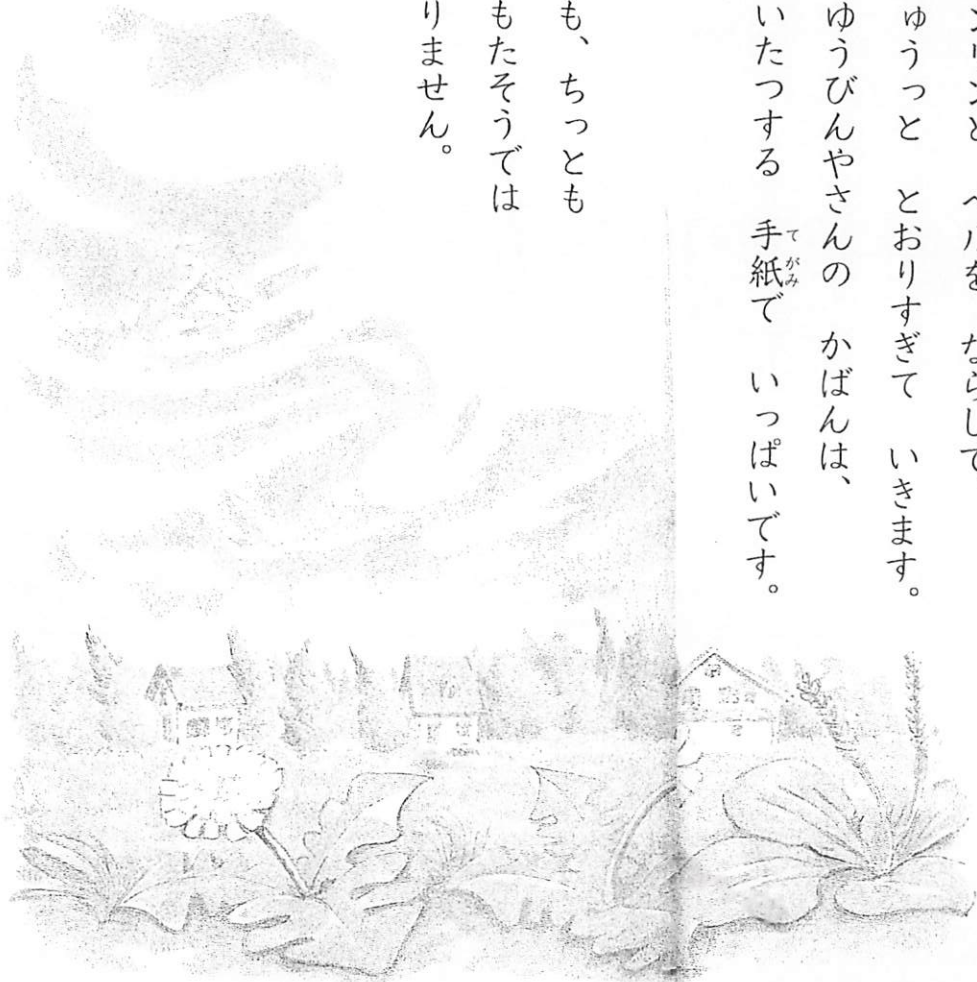 ンリンと ベルを ならして
ゅうっと とおりすぎて いきます。
ゆうびんやさんの かばんは、
いたつする 手紙で いっぱいです。
も、ちっとも
もたそうでは
りません。